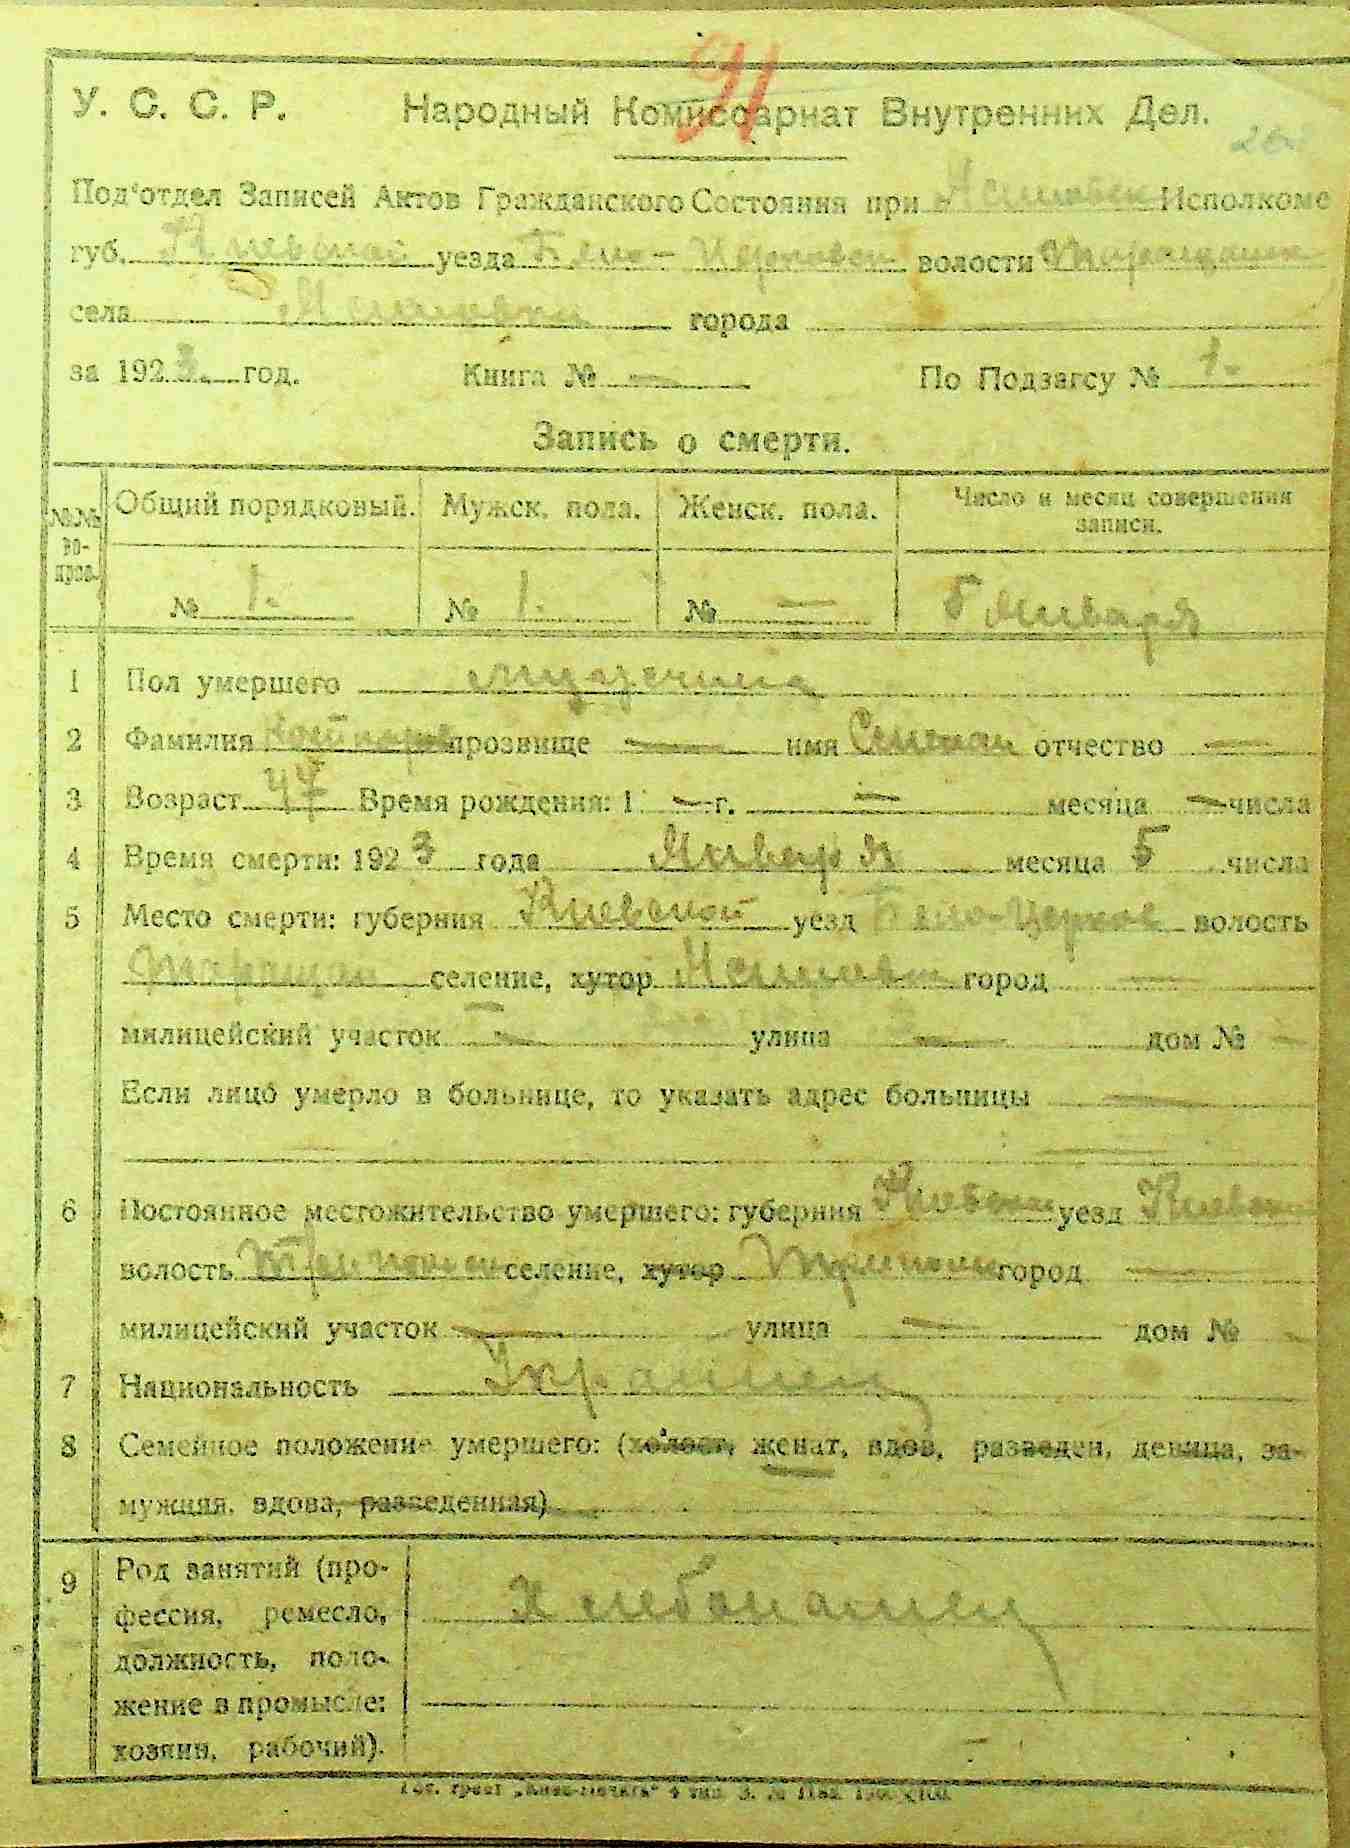 91
У. С. С. Р. Народный Комиссариат Внутренних Дел.
Под'отдел Записей Актов Гражданского Состояния при Исполкоме
губ. Киевской уезда Бело-Церковск волости
села города
за 1923. год. Книга № — По Подзагсу № 1.
Запись о смерти.
№№ вопрос. Общий порядковый. Мужск. пола. Женск. пола. Число и месяц совершения записи.
№ 1. № 1. № — 5 Января
1 Пол умершего мужчина
2 Фамилия прозвище — имя Степан отчество —
3 Возраст 47 Время рождения: 1 — г. — месяца — числа
4 Время смерти: 1923 года Января месяца 5 числа
5 Место смерти: губерния Киевской уезд Бело-Церков волость
Таращан селение, хутор город —
милицейский участок — улица — дом № —
Если лицо умерло в больнице, то указать адрес больницы —
6 Постоянное местожительство умершего: губерния уезд Киевск
волость селение, хутор город —
милицейский участок — улица — дом № -
7 Национальность Украинец
8 Семейное положение умершего: (холост, женат, вдов, разведен, девица, за-
мужняя, вдова, разведенная)
9 Род занятий (про- Хлебопашец
фессия, ремесло,
должность, поло-
жение в промысле:
хозяин, рабочий).